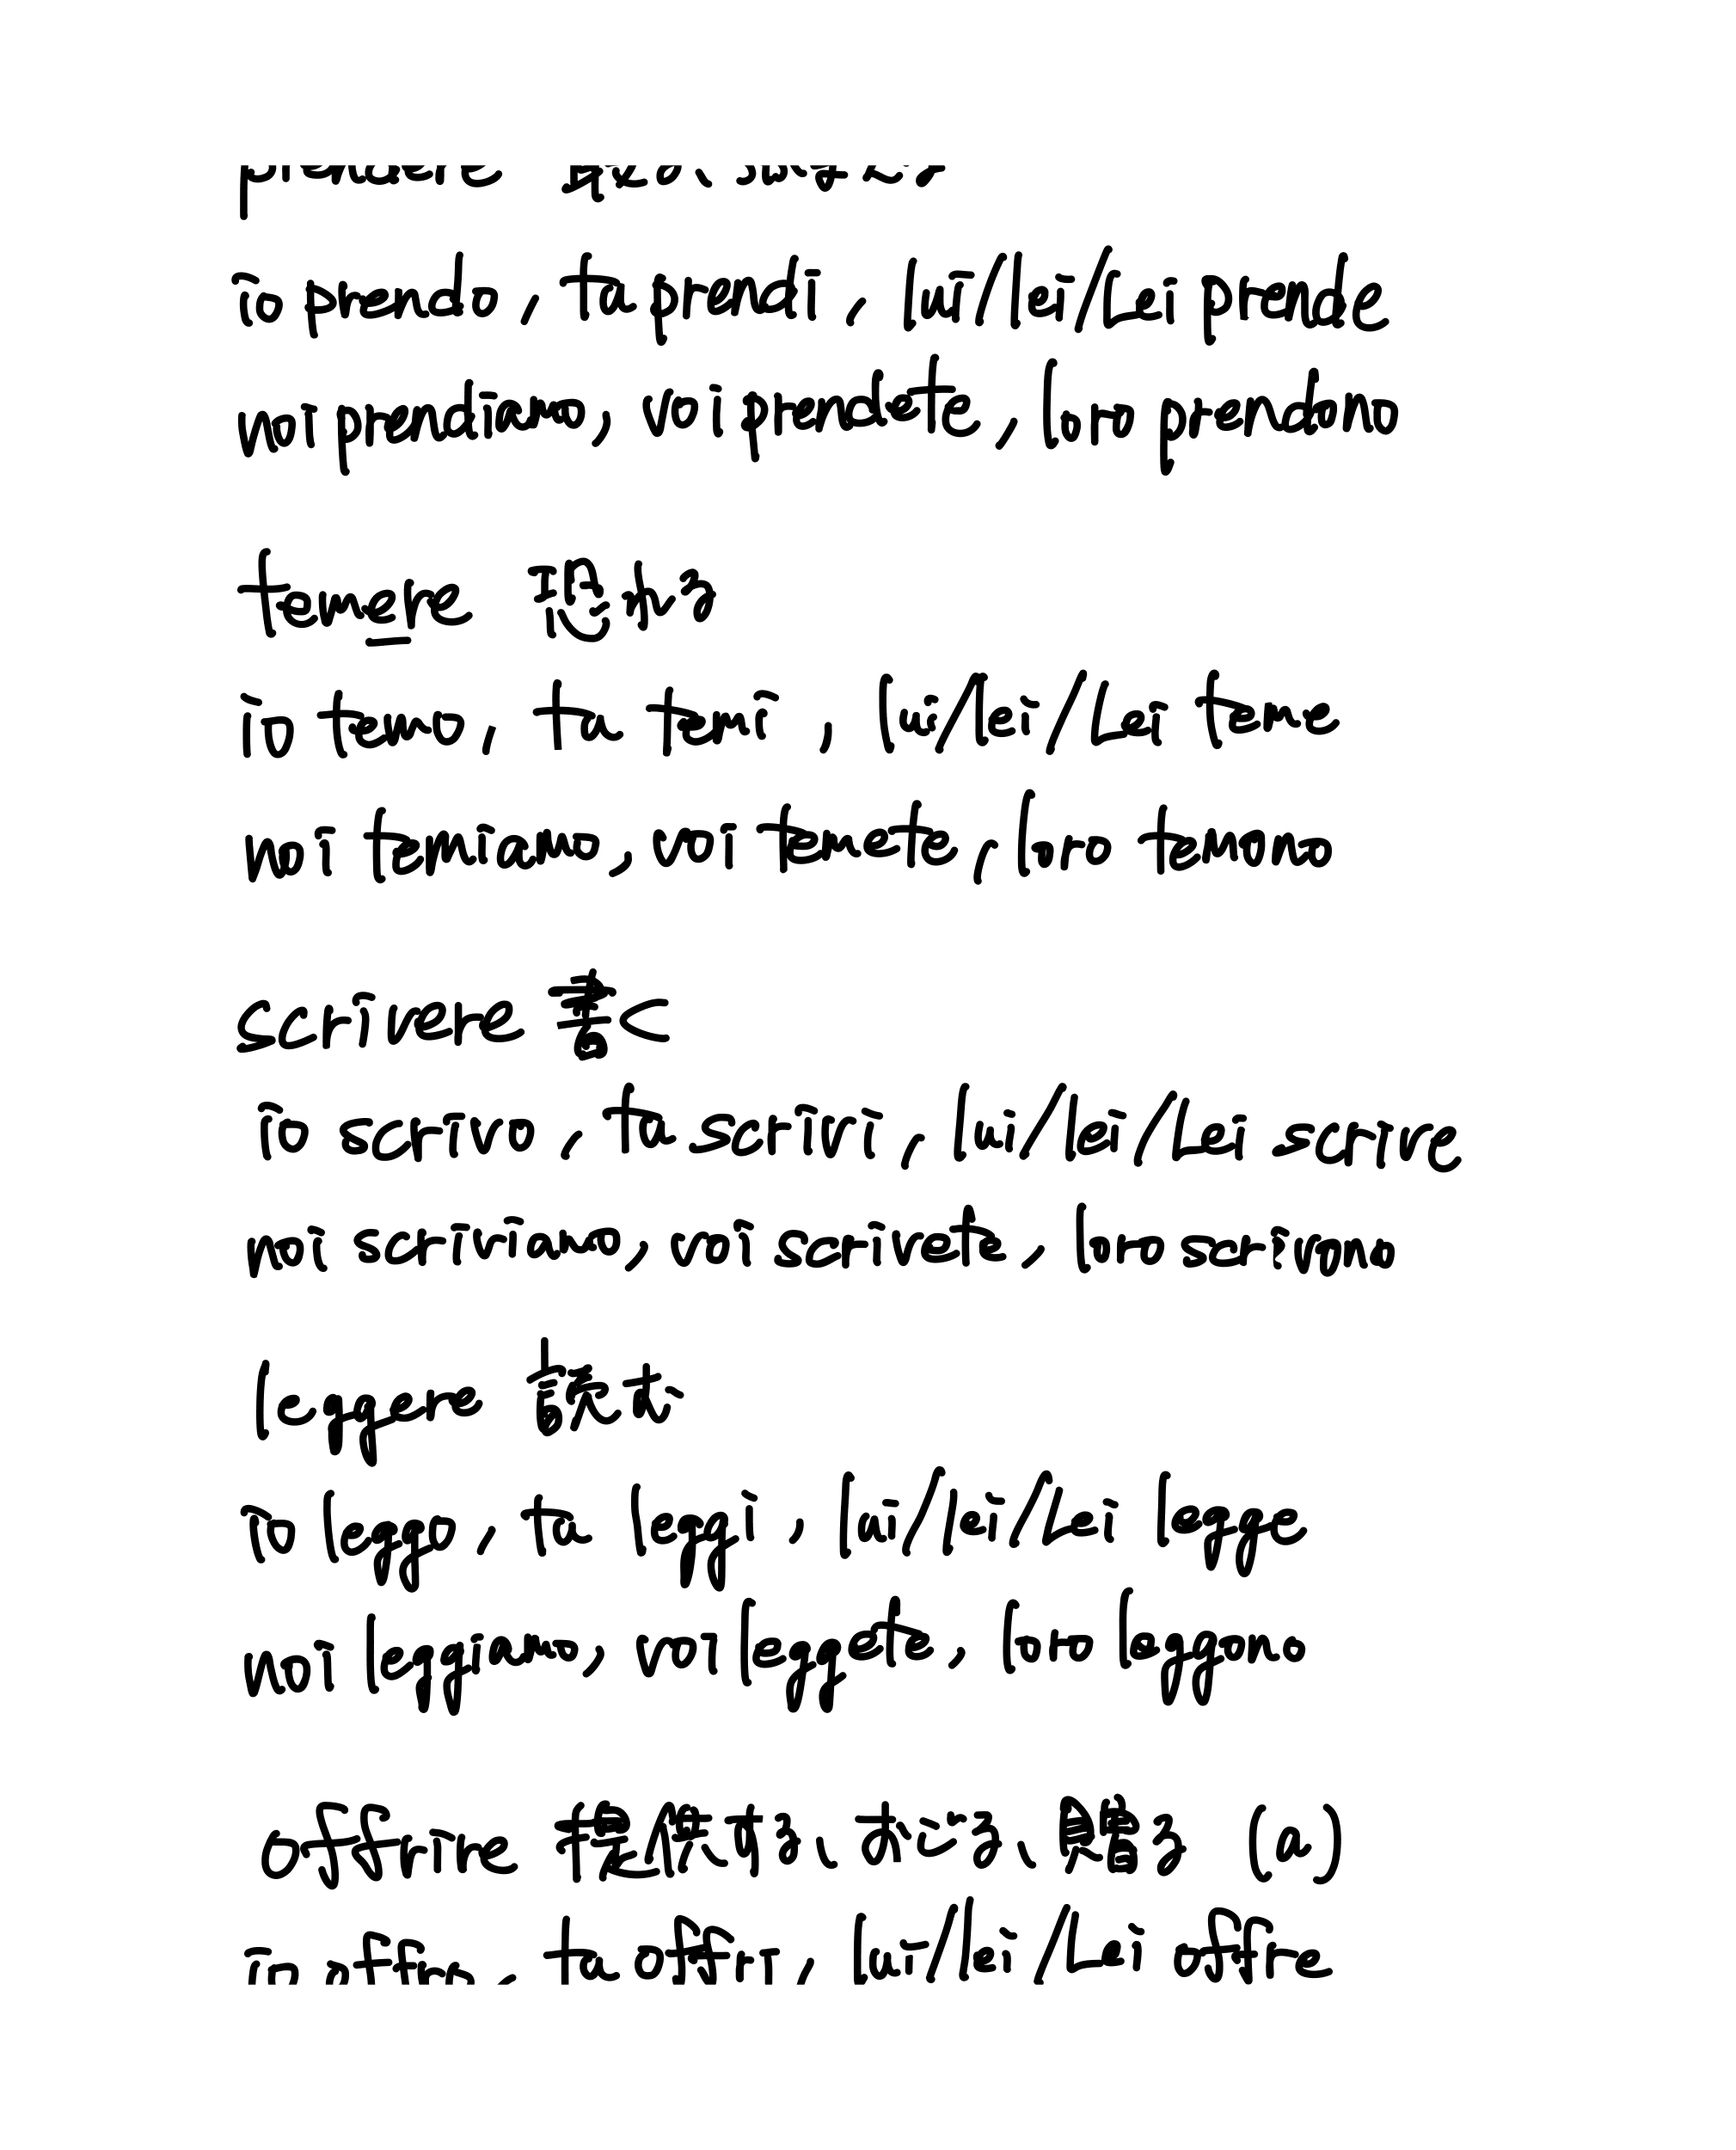 prendere 取る、
io prendo, tu prendi, lui/lei/Lei prende
noi prendiamo, voi prendete, loro prendono
temere 恐れる
io temo, tu temi, lui/lei/Lei teme
noi temiamo, voi temete, loro temono
scrivere 書く
io scrivo, tu scrivi, lui/lei/Lei scrive
noi scriviamo, voi scrivete, loro scrivono
leggere 読む
io leggo, tu leggi, lui/lei/Lei legge
noi leggiamo, voi leggete, loro leggono
offrire 提供する、おごる、贈る (a)
io offro, tu offri, lui/lei/Lei offre